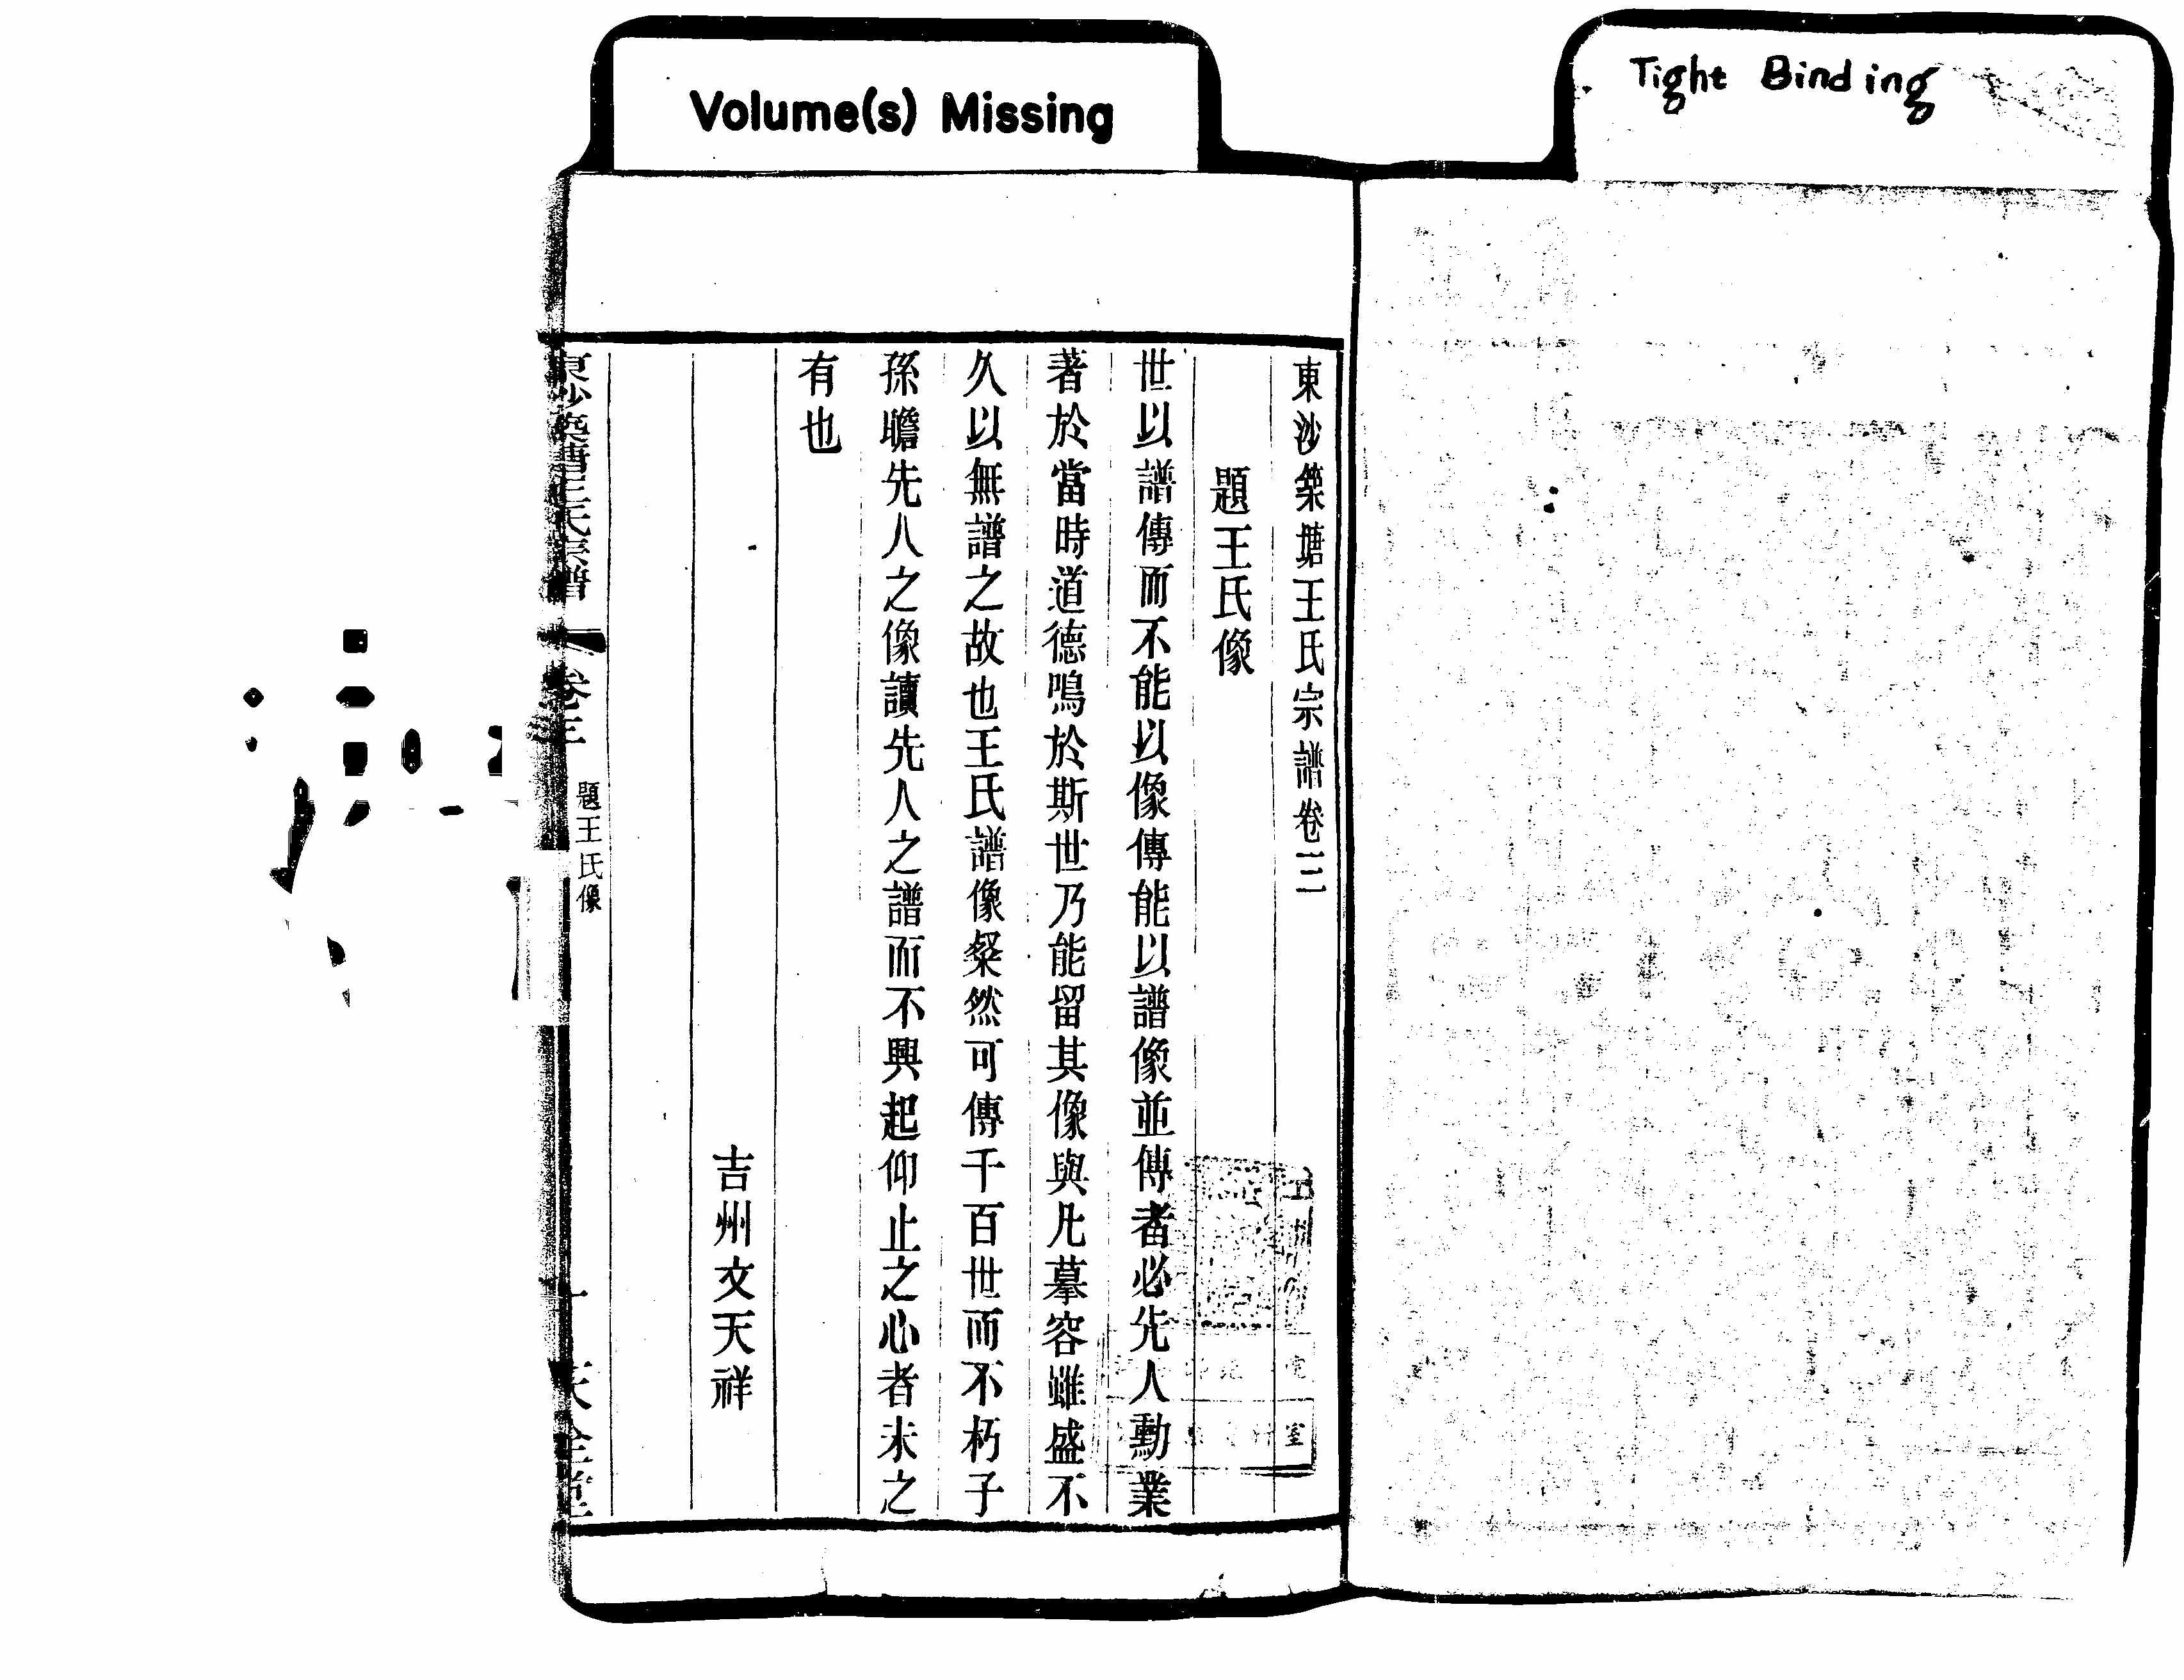 Volume(s) Missing
Tight Binding
東沙築塘王氏宗譜卷三
題王氏像
世以譜傳而不能以像傳能以譜像並傳者必先人勳業
著於當時道德鳴於斯世乃能留其像與凡摹容雖盛不
久以無譜之故也王氏譜像粲然可傳千百世而不朽子
孫瞻先人之像讀先人之譜而不興起仰止之心者未之
有也
吉州文天祥
東沙築塘王氏宗譜
卷三
題王氏像
一
室